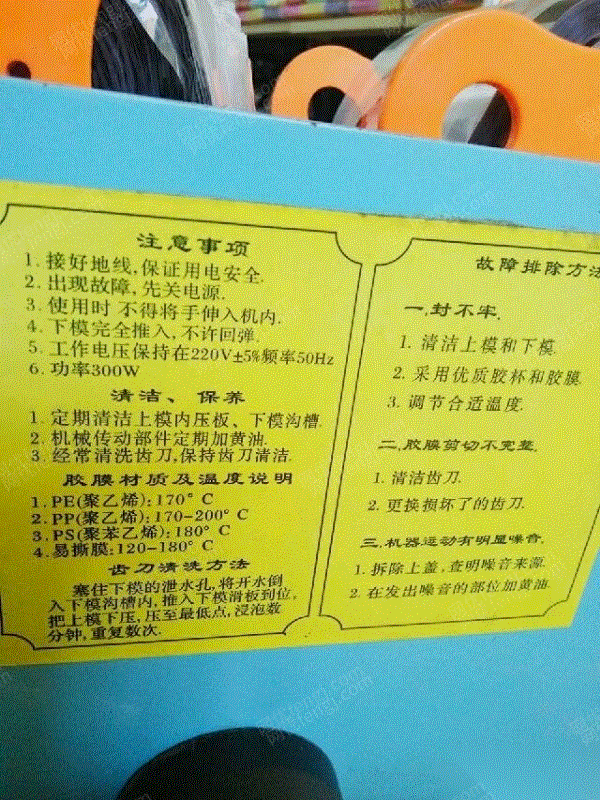 注意事项
1. 接好地线,保证用电安全.
2. 出现故障,先关电源.
3. 使用时 不得将手伸入机内.
4. 下模完全推入,不许回弹.
5. 工作电压保持在220V±5%频率50Hz
6. 功率300W
清洁、保养
1. 定期清洁上模内压板、下模沟槽.
2. 机械传动部件定期加黄油.
3. 经常清洗齿刀,保持齿刀清洁.
胶膜材质及温度说明
1. PE(聚乙烯): 170° C
2. PP(聚乙烯): 170-200° C
3. PS(聚苯乙烯): 180° C
4. 易撕膜: 120-180° C
齿刀清洗方法
塞住下模的泄水孔, 将开水倒
入下模沟槽内, 推入下模滑板到位,
把上模下压, 压至最低点, 浸泡数
分钟, 重复数次.
故障排除方法
一.封不牢.
1. 清洁上模和下模.
2. 采用优质胶杯和胶膜.
3. 调节合适温度.
二.胶膜剪切不完整.
1. 清洁齿刀.
2. 更换损坏了的齿刀.
三.机器运动有明显噪音.
1. 拆除上盖, 查明噪音来源.
2. 在发出噪音的部位加黄油.